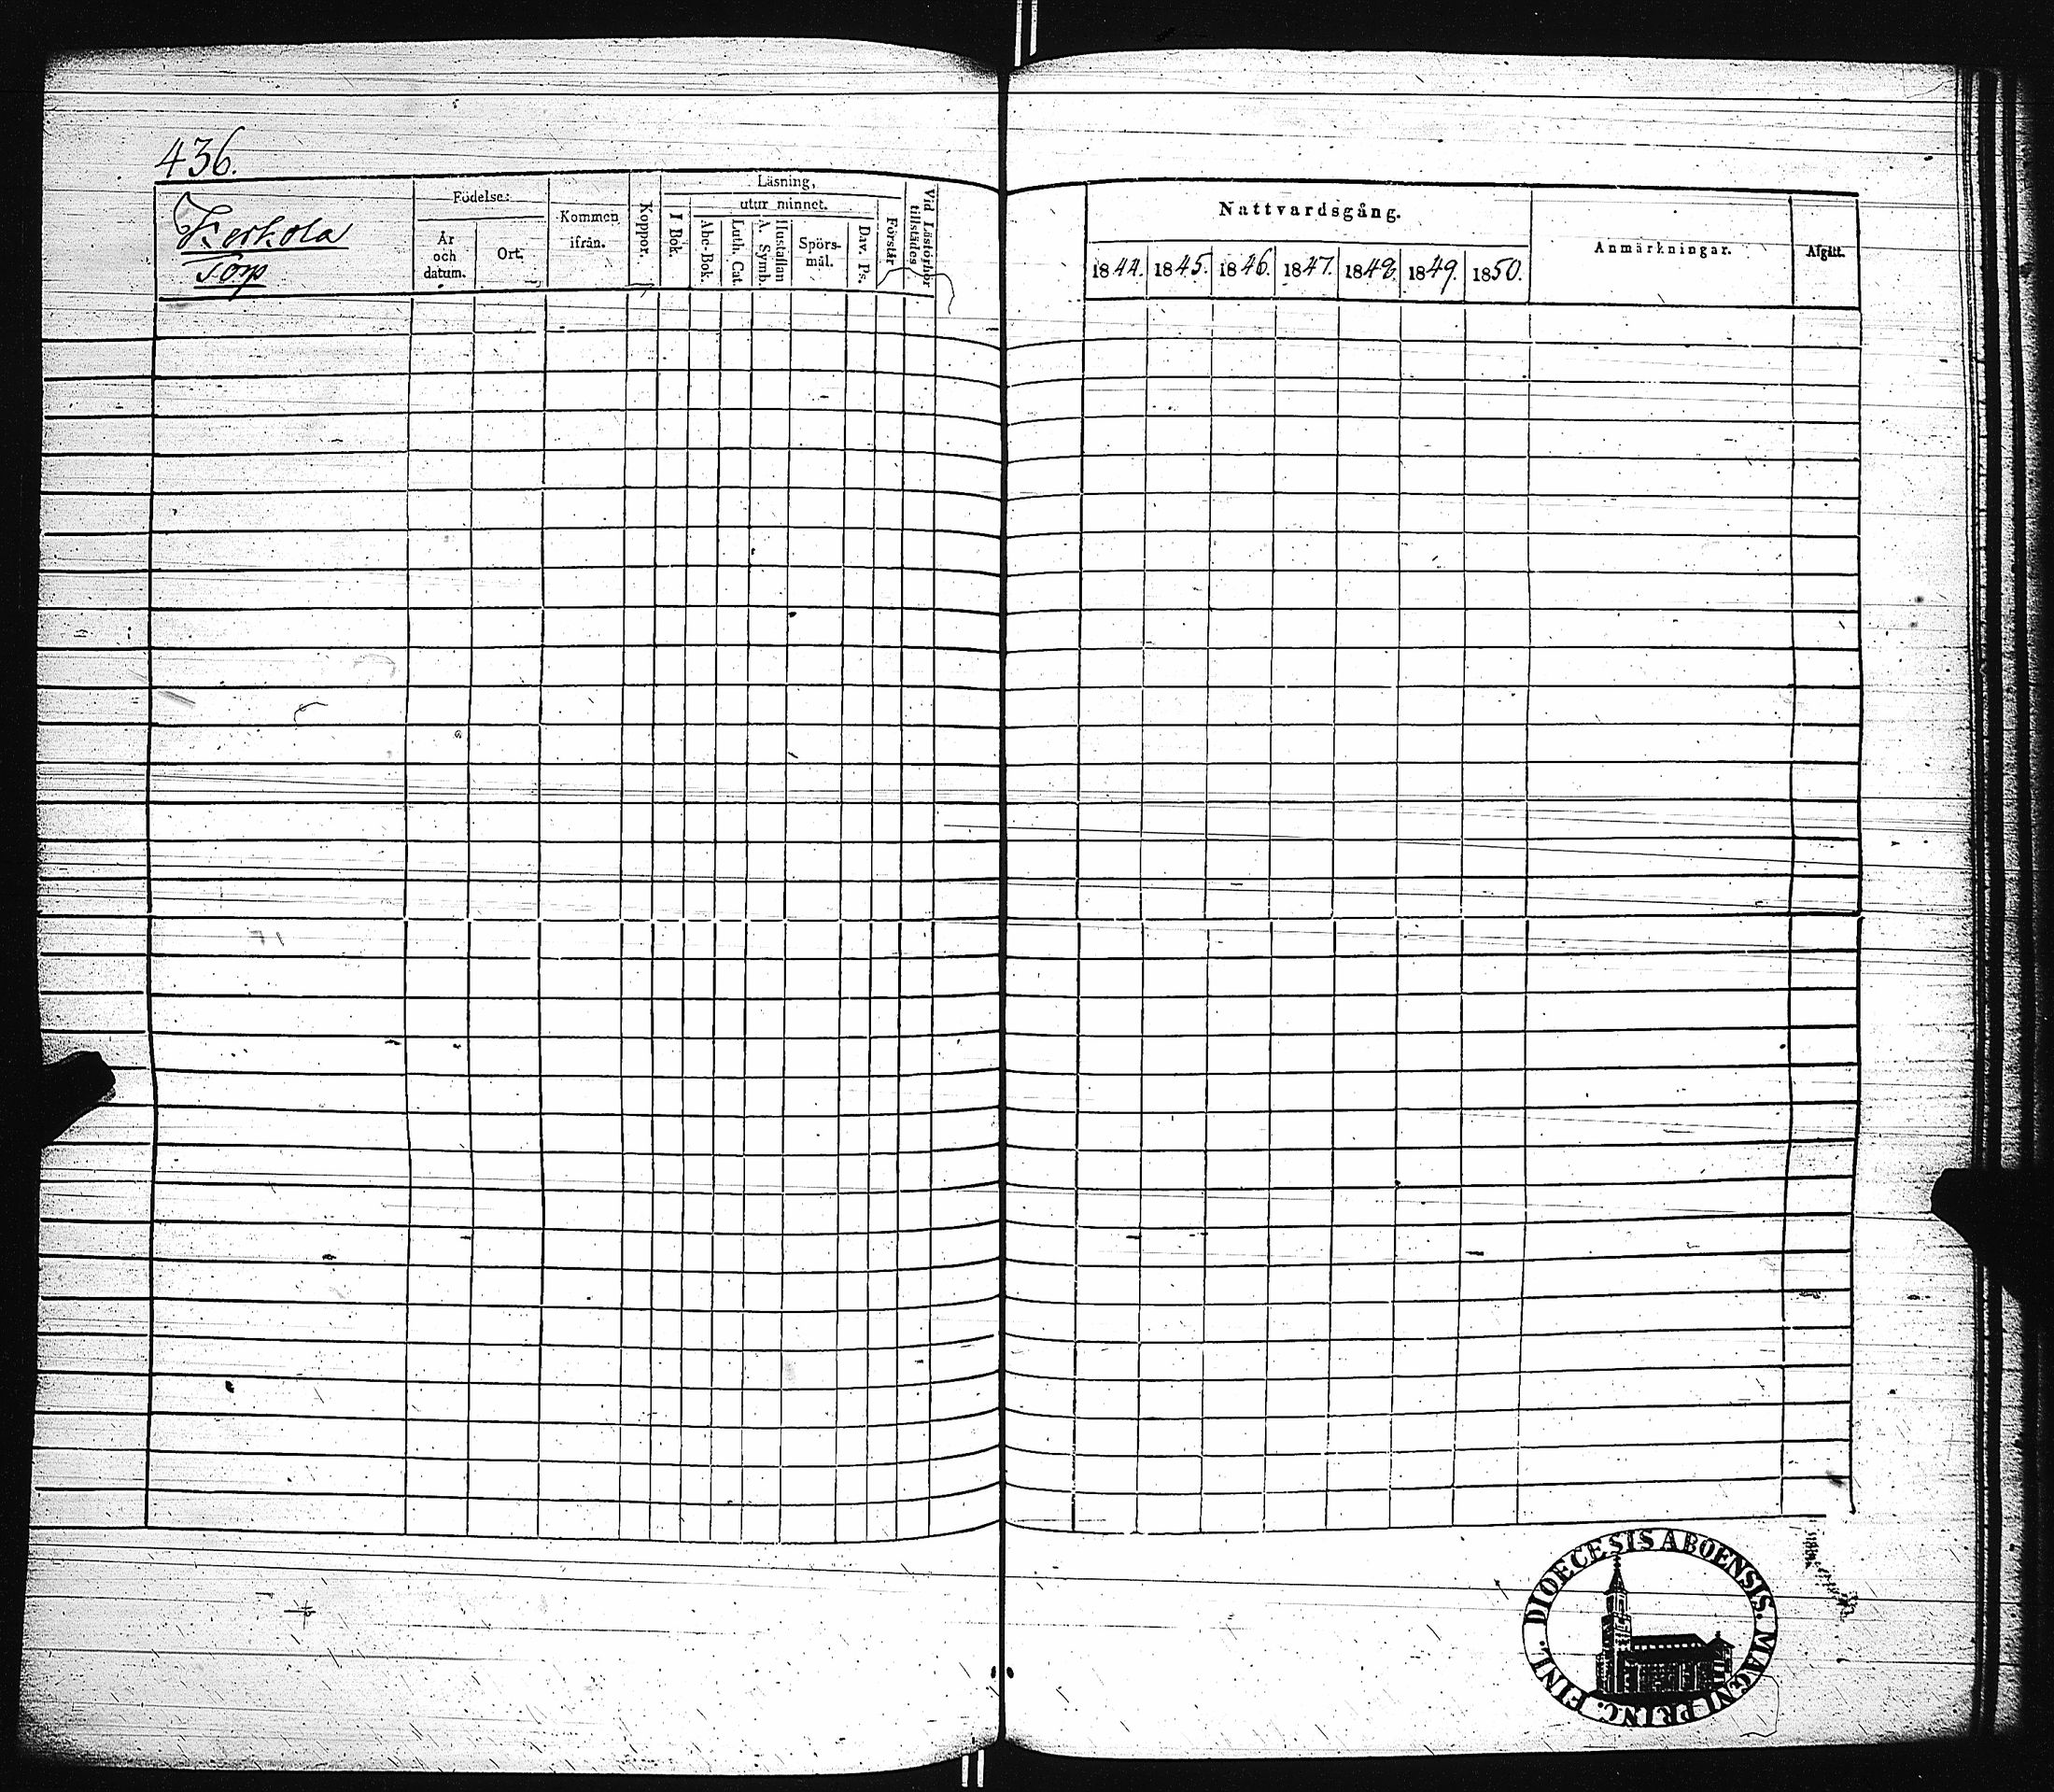 436.
Kerkola
Torp
Födelse:
År
och
datum.
Ort.
Kommen
ifrån.
Koppor.
Läsning,
I Bok.
utur minnet.
Abc-Bok.
Luth. Cat.
A. Symb.
Hustaflan
Spörs-
mål.
Dav. Ps.
Förstår
Vid Läsförhör
tillstädes
Nattvardsgång.
1844.
1845.
1846.
1847.
1848.
1849.
1850.
Anmärkningar.
Afgått.
DIOECESIS ABOENSIS. MAGNI PRINC. FINL.